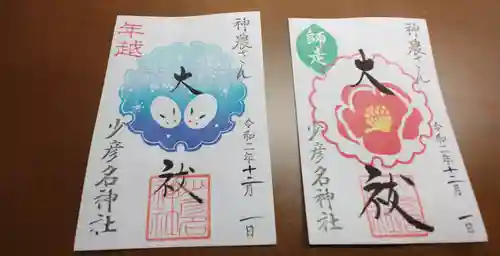 神農さん
年越
大祓
少彦名神社
令和二年十二月 一日
神農さん
師走
大祓
少彦名神社
令和二年十二月 一日